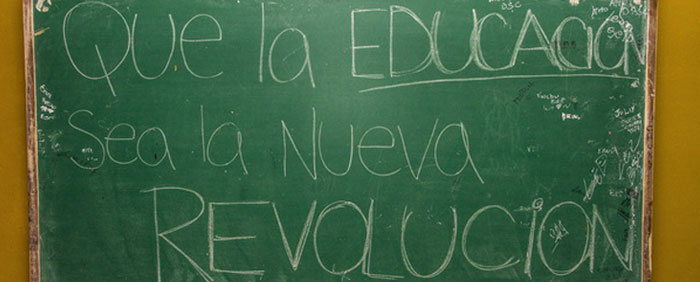 Que la EDUCACIÓN
Sea la Nueva
REVOLUCION